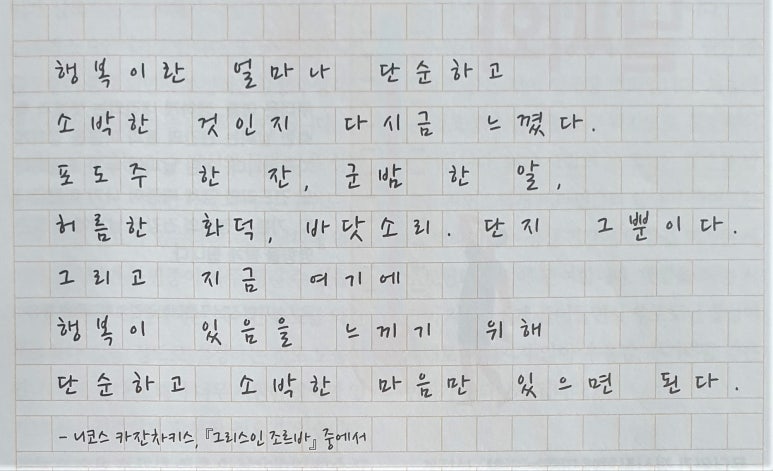 행복이란 얼마나 단순하고
소박한 것인지 다시금 느꼈다.
포도주 한 잔, 군밤 한 알,
허름한 화덕, 바닷소리. 단지 그뿐이다.
그리고 지금 여기에
행복이 있음을 느끼기 위해
단순하고 소박한 마음만 있으면 된다.
- 니코스 카잔차키스, 『그리스인 조르바』 중에서